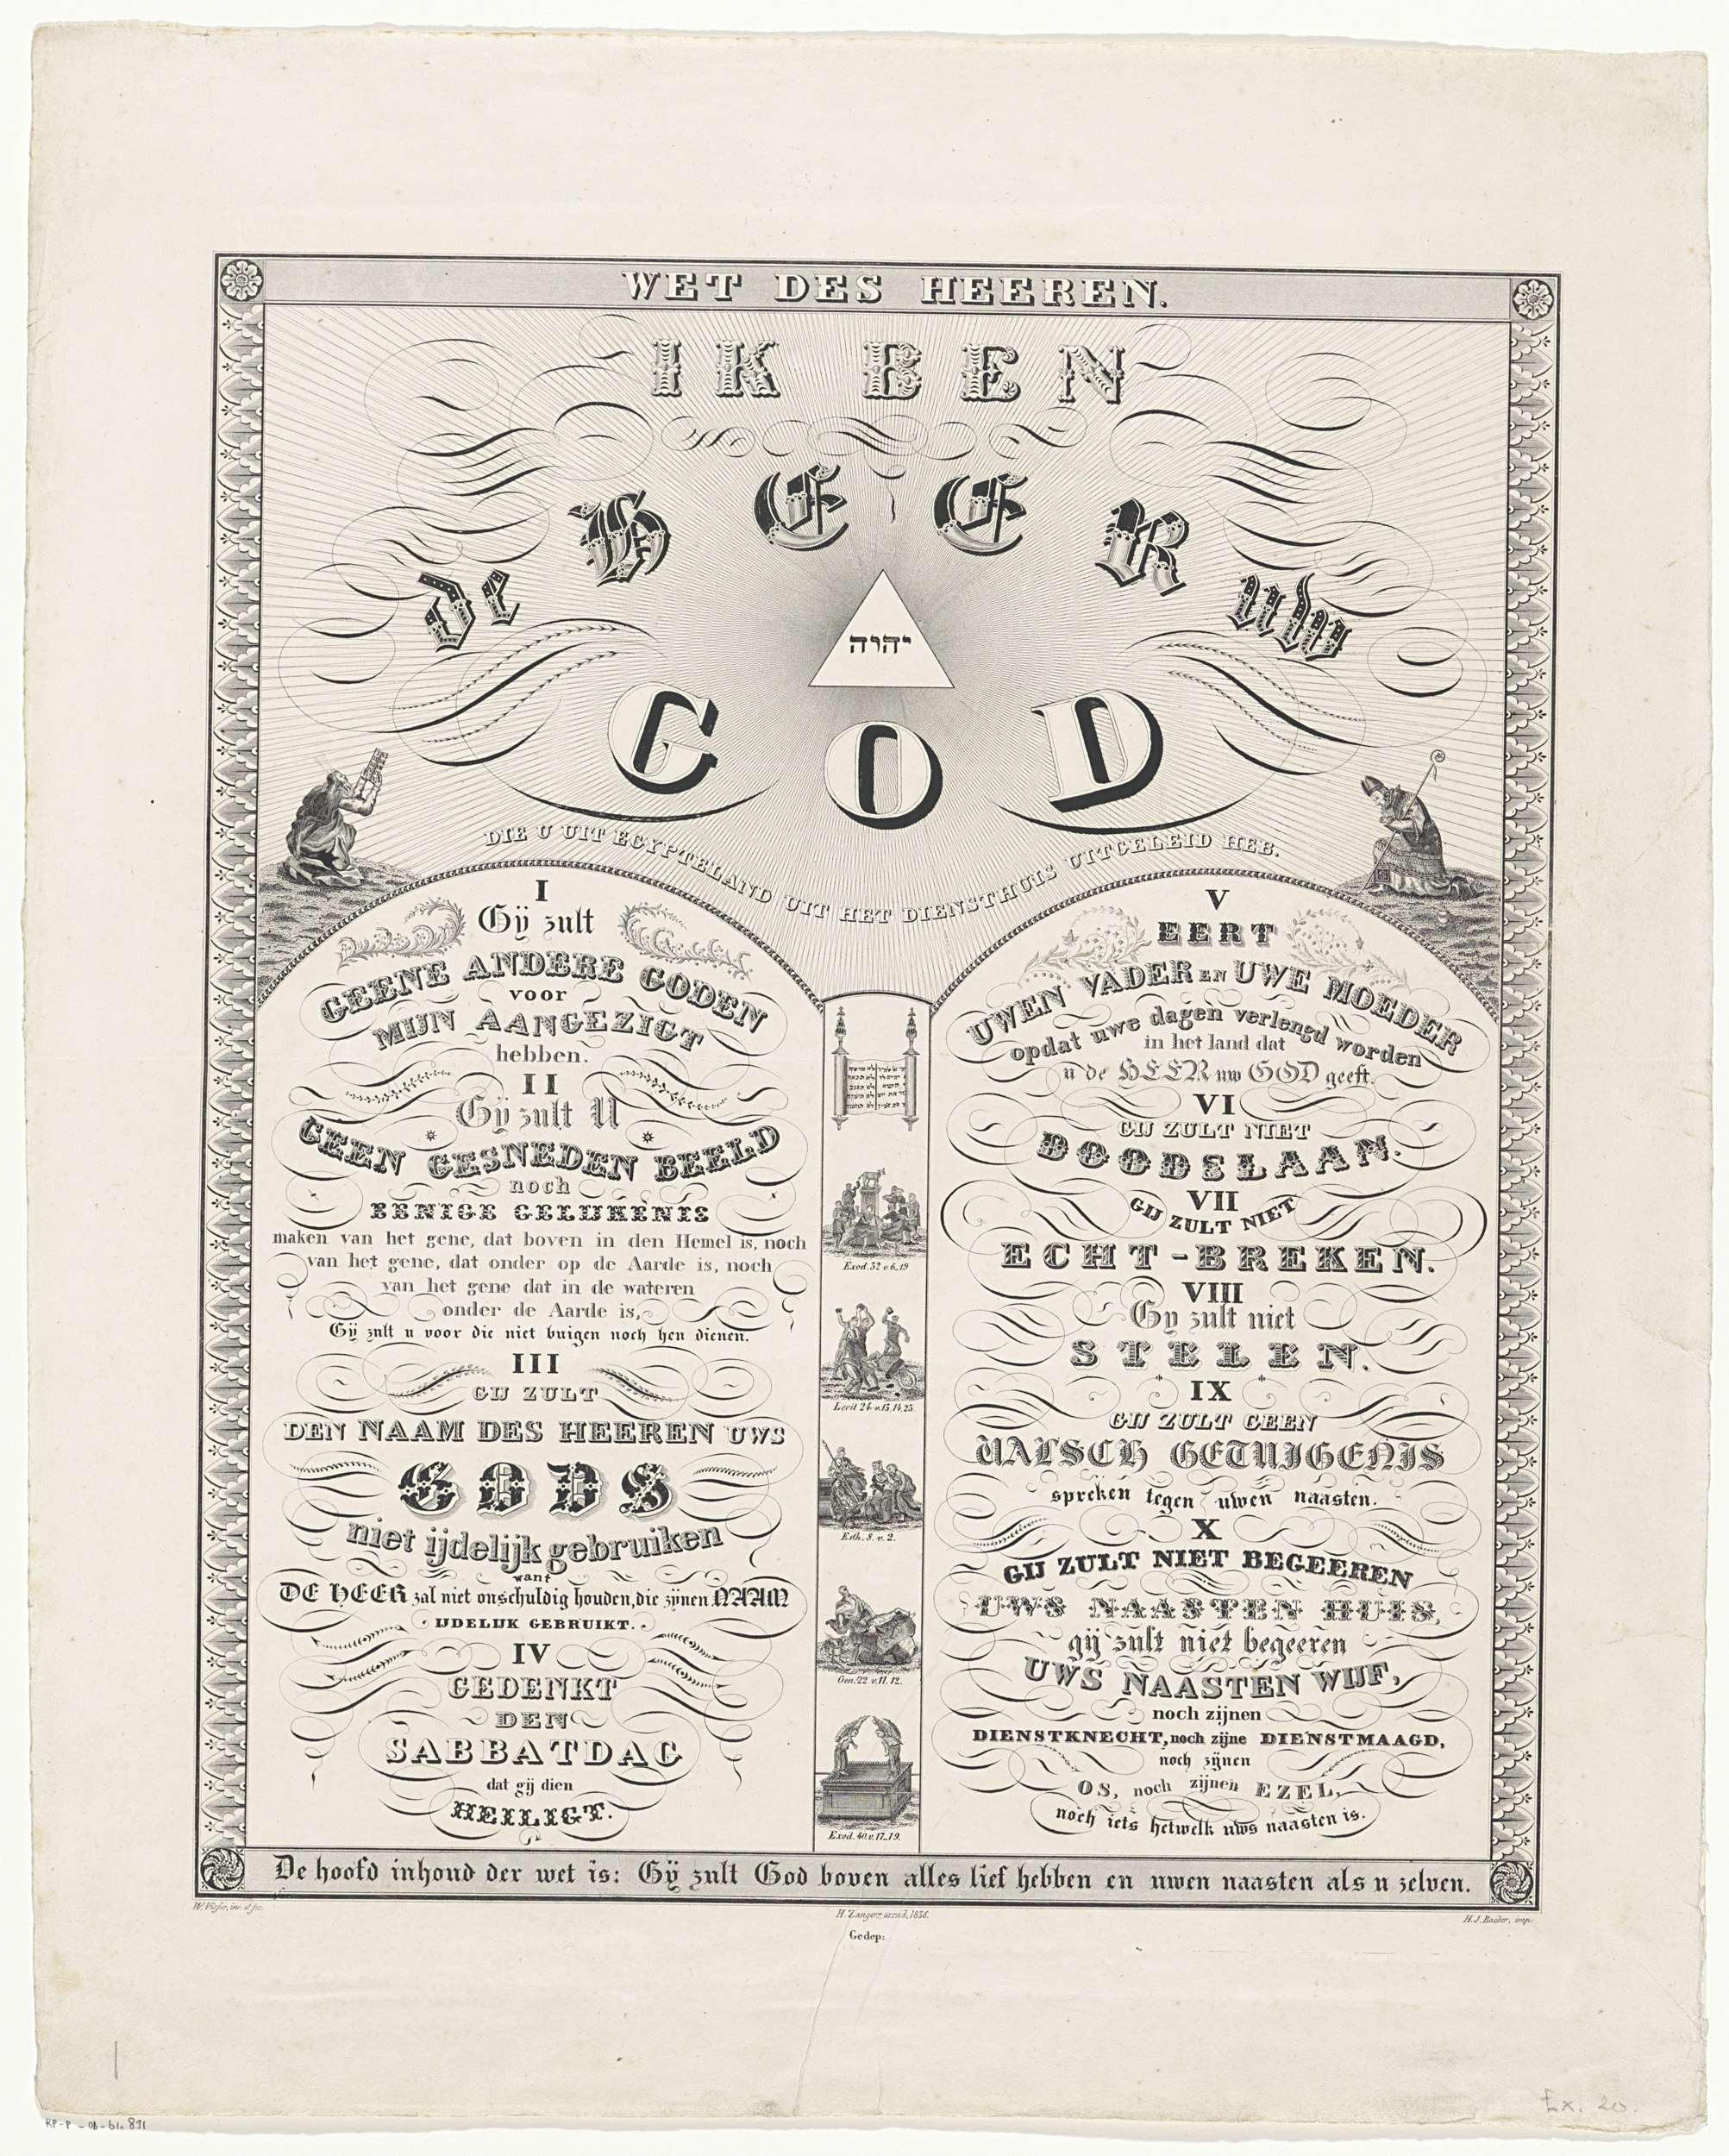 WET DES HEEREN.
IK BEN
de HEER uw
יהוה
GOD
DIE U UIT EGYPTELAND UIT HET DIENSTHUIS UITGELEID HEB.
I
Gij zult
GEENE ANDERE GODEN
voor
MIJN AANGEZIGT
hebben.
II
Gij zult U
GEEN GESNEDEN BEELD
noch
EENIGE GELIJKENIS
maken van het gene, dat boven in den Hemel is, noch
van het gene, dat onder op de Aarde is, noch
van het gene dat in de wateren
onder de Aarde is,
Gij zult u voor die niet buigen noch hen dienen.
III
GIJ ZULT
DEN NAAM DES HEEREN UWS
GODS
niet ijdelijk gebruiken
want
DE HEER zal niet onschuldig houden, die zijnen NAAM
IJDELIJK GEBRUIKT.
IV
GEDENKT
DEN
SABBATDAG
dat gij dien
HEILIGT.
Exod. 32 v. 6. 19
Levit 24 v. 13, 14, 23.
Esth. 8. v. 2.
Gen. 22 v. 11. 12.
Exod. 40. v. 17_19.
V
EERT
UWEN VADER EN UWE MOEDER
opdat uwe dagen verlengd worden
in het land dat
u de HEER uw GOD geeft.
VI
GIJ ZULT NIET
DOODSLAAN.
VII
GIJ ZULT NIET
ECHT-BREKEN.
VIII
Gy zult niet
STELEN.
IX
GIJ ZULT GEEN
VALSCH GETUIGENIS
spreken tegen uwen naasten.
X
GIJ ZULT NIET BEGEEREN
UWS NAASTEN HUIS,
gij zult niet begeeren
UWS NAASTEN WIJF,
noch zijnen
DIENSTKNECHT, noch zijne DIENSTMAAGD,
noch zijnen
OS, noch zijnen EZEL,
noch iets hetwelk uws naasten is.
De hoofd inhoud der wet is: Gij zult God boven alles lief hebben en uwen naasten als u zelven.
W. Visser, inv. et fec.
H. Zangers, excud. 1856.
H. J. Backer, imp.
Gedep:
RP-P-OB-61.831
Ex. 20.